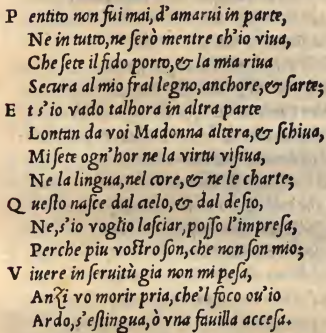 P entito non fui mai, d'amarui in parte,
Ne in tutto, ne ſerò mentre ch'io viua,
Che ſete il fido porto, & la mia riua
Secura al mio fral legno, anchore, & ſarte;
E t s'io vado talhora in altra parte
Lontan da voi Madonna altera, & ſchiua,
Mi ſete ogn'hor ne la virtu viſiua,
Ne la lingua, nel core, & ne le charte;
Q ueſto naſce dal cielo, & dal deſio,
Ne, s'io voglio laſciar, poſſo l'impreſa,
Perche piu voſtro ſon, che non ſon mio;
V iuere in ſeruitù gia non mi peſa,
Anzi vo morir pria, che'l foco ou'io
Ardo, s'eſtingua, ò vna fauilla acceſa.